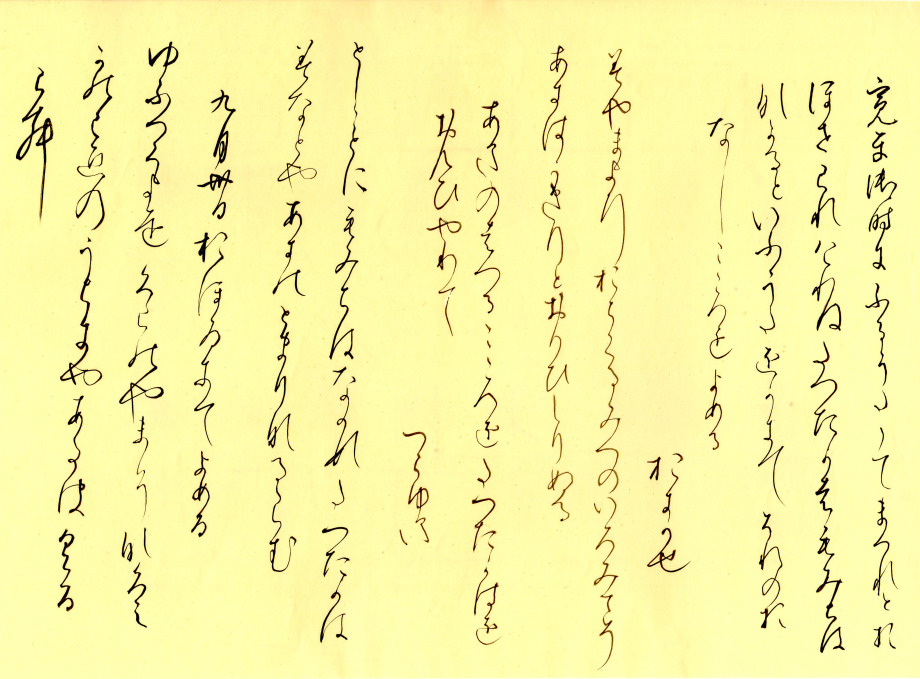 寛平御時にふるきうたゝてまつれとお
ほせられけれはたつたかはもみちは
なかるといふうたをかきてそれのお
なしこゝろをよめる
おきかせ
みやまよりおちくるみつのいろみてそ
あきはかきりとおもひしりぬる
あきのはつるこゝろをたつたかはを
おもひやりて
つらゆき
としことにもみちはなかれたつたかは
みなとやあきのとまりなるらむ
九月卅日おほゐにてよめる
ゆふつくよをくらのやまになくし
かのこゑのうちにやあきはくる
らむ